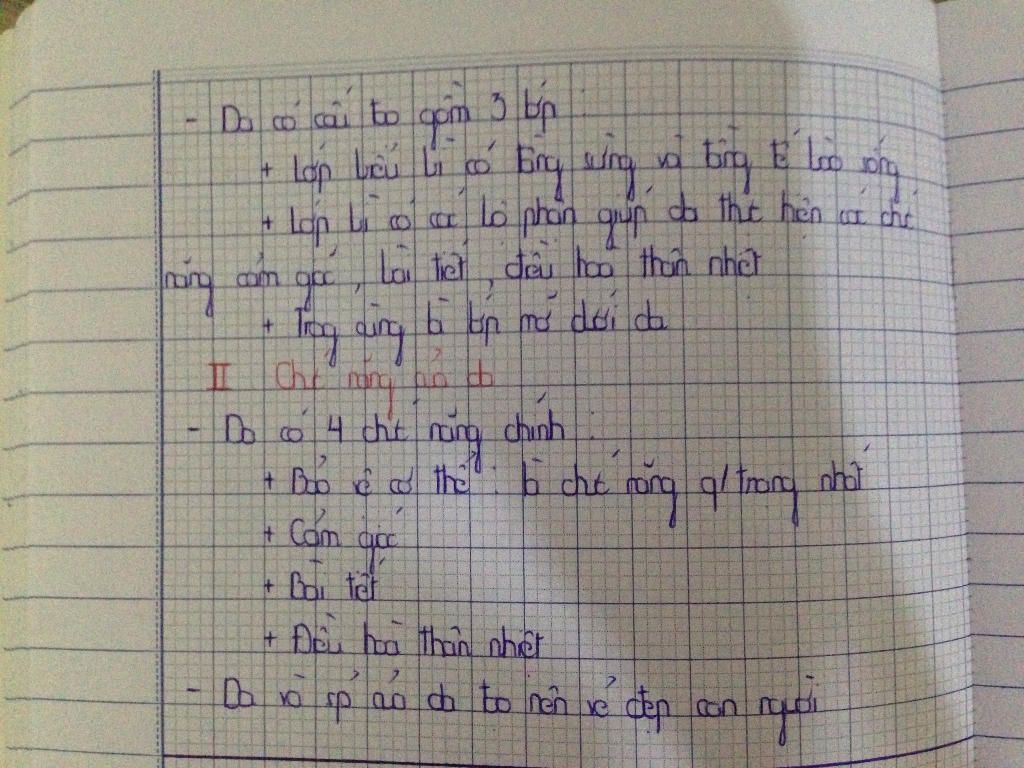 - Da có cấu tạo gồm 3 lớp :
+ Lớp biểu bì có tầng sừng và tầng tế bào sống
+ Lớp bì có các bộ phận giúp da thực hiện các chức
năng cảm giác, bài tiết, điều hoà thân nhiệt
+ Trong cùng là lớp mỡ dưới da
II Chức năng của da
- Da có 4 chức năng chính :
+ Bảo vệ cơ thể : là chức năng q/trọng nhất
+ Cảm giác
+ Bài tiết
+ Điều hoà thân nhiệt
- Da và sp của da tạo nên vẻ đẹp con người